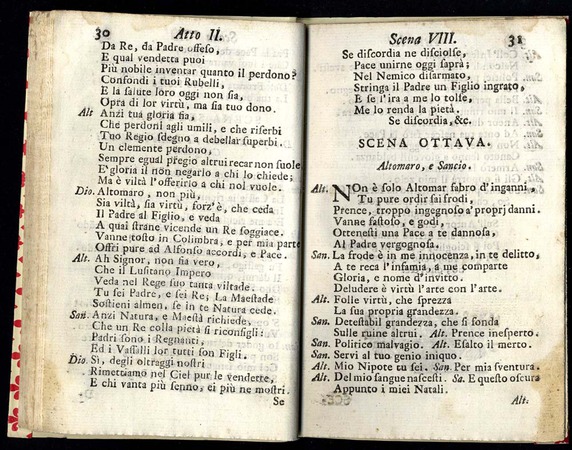 30 Atto II.
Da Re, da Padre offeso,
E qual vendetta puoi
Più nobile inventar quanto il perdono?
Confondi i tuoi Rubelli,
E la salute loro oggi non sia,
Opra di lor virtù, ma sia tuo dono.
Alt Anzi tua gloria fia,
Che perdoni agli umili, e che riserbi
Tuo Regio sdegno a debellar superbi.
Un clemente perdono,
Sempre egual pregio altrui recar non suole
E' gloria il non negarlo a chi lo chiede;
Ma è viltà l'offerirlo a chi nol vuole.
Dio. Altomaro, non più,
Sia viltà, sia virtù, forz'è, che ceda
Il Padre al Figlio, e veda
A quai strane vicende un Re soggiace.
Vanne tosto in Colimbra, e per mia parte
Offri pure ad Alfonso accordi, e Pace.
Alt. Ah Signor, non fia vero,
Che il Lusitano Impero
Veda nel Rege suo tanta viltade.
Tu sei Padre, e sei Re; La Maestade
Sostieni almen, se in te Natura cede.
San. Anzi Natura, e Maestà richiede,
Che un Re colla pietà si riconsigli:
Padri sono i Regnanti,
Ed i Vassalli lor tutti son Figli.
Dio. Sì, degli oltraggi nostri
Rimettiamo nel Ciel pur le vendette,
E chi vanta più senno, ei più ne mostri.
Se
Scena VIII. 31
Se discordia ne disciolse,
Pace unirne oggi saprà;
Nel Nemico disarmato,
Stringa il Padre un Figlio ingrato,
E se l'ira a me lo tolse,
Me lo renda la pietà.
Se discordia, &c.
SCENA OTTAVA.
Altomaro, e Sancio.
Alt. NOn è solo Altomar fabro d'inganni,
Tu pure ordir sai frodi,
Prence, troppo ingegnoso a' proprj danni.
Vanne fastoso, e godi,
Ottenesti una Pace a te dannosa,
Al Padre vergognosa.
San. La frode è in me innocenza, in te delitto,
A te reca l'infamia, a me comparte
Gloria, e nome d'invitto.
Deludere è virtù l'arte con l'arte.
Alt. Folle virtù, che sprezza
La sua propria grandezza.
San. Detestabil grandezza, che si fonda
Sulle ruine altrui. Alt. Prence inesperto.
San. Politico malvagio. Alt. Esalto il merto.
San. Servi al tuo genio iniquo.
Alt. Mio Nipote tu sei. San. Per mia sventura.
Alt. Del mio sangue nascesti. Sa. E questo oscura
Appunto i miei Natali.
Alt.